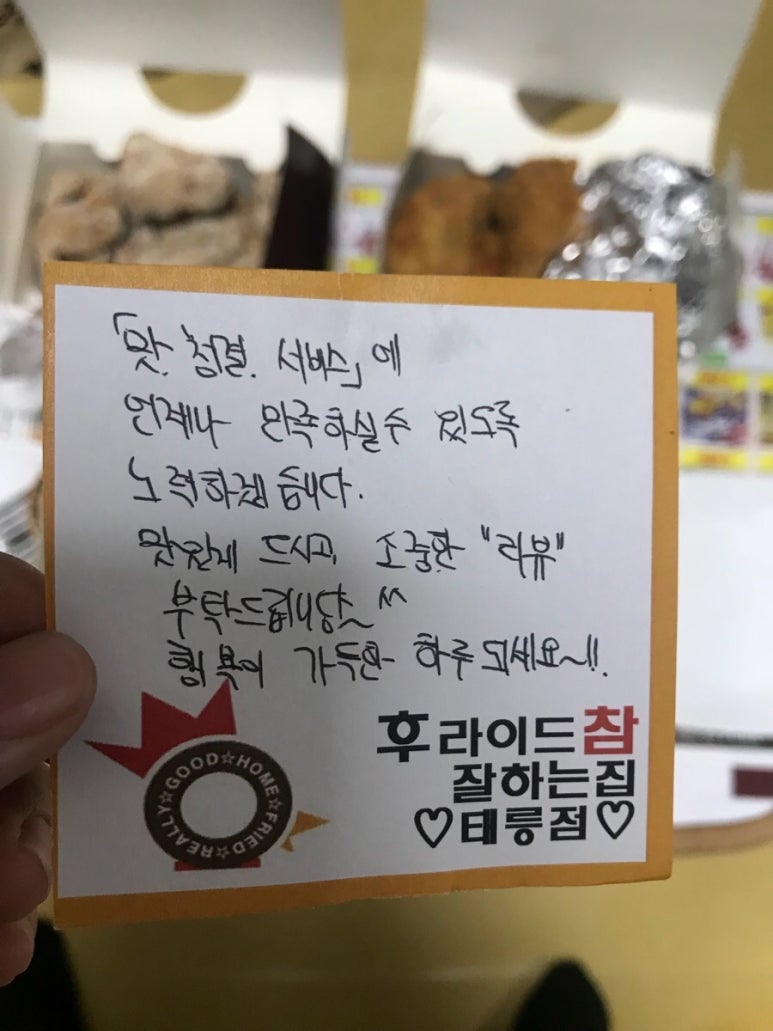 「맛. 청결. 서비스」에
언제나 만족하실수 있도록
노력하겠습니다.
맛있게 드시고, 소중한 "리뷰"
부탁드립니당~^^
행복이 가득한 하루 되세요~!!.
REALLY☆GOOD☆HOME☆FRIED☆
후라이드참
잘하는집
♡태릉점♡